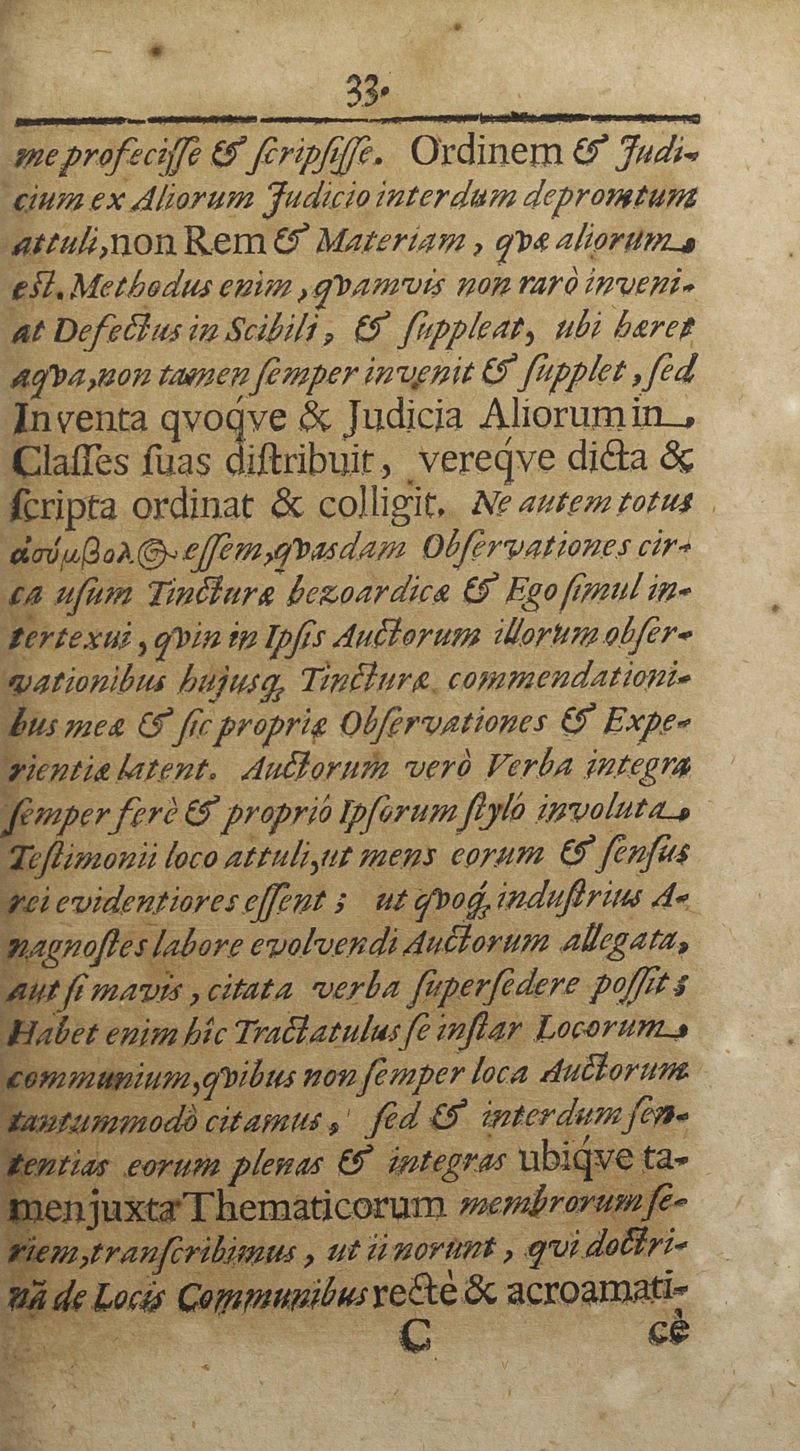 33.
me profeciſſe & ſcripſiſſe. Ordinem & Judi-
cium ex Aliorum Judicio interdum depromtum
attuli, non Rem & Materiam, qvæ aliorum
eſt. Methodus enim, qvamvis non rarò inveni-
at Defectus in Scibili, & ſuppleat, ubi hæret
aqva, non tamen ſemper invenit & ſupplet, ſed
Inventa qvoqve & Judicia Aliorum in
Claſſes ſuas diſtribuit, vereqve dicta &
ſcripta ordinat & colligit. Ne autem totus
ἀσύμβολ@ eſſem, qvasdam Obſervationes cir-
ca uſum Tincturæ bezoardicæ & Ego ſimul in-
tertexui, qvin in Ipſis Auctorum illorum obſer-
vationibus hujusq; Tincturæ commendationi-
bus meæ & ſic propriæ Obſervationes & Expe-
rientiæ latent. Auctorum verò Verba integra
ſemper ferè & propriò Ipſorum ſtylô involuta
Teſtimonii loco attuli, ut mens eorum & ſenſus
rei evidentiores eſſent; ut qvoq; induſtrius A-
nagnoſtes labore evolvendi Auctorum allegata,
aut ſi mavis, citata verba ſuperſedere poſſit;
Habet enim hîc Tractatulus ſe inſtar Locorum
communium, qvibus non ſemper loca Auctorum
tantummodò citamus, ſed & interdum ſen-
tentias eorum plenas & integras ubiqve ta-
men juxta Thematicorum membrorum ſe-
riem, tranſcribimus, ut ii norunt, qvi doctri-
nâ de Locis Communibus rectè & acroamati-
C cè